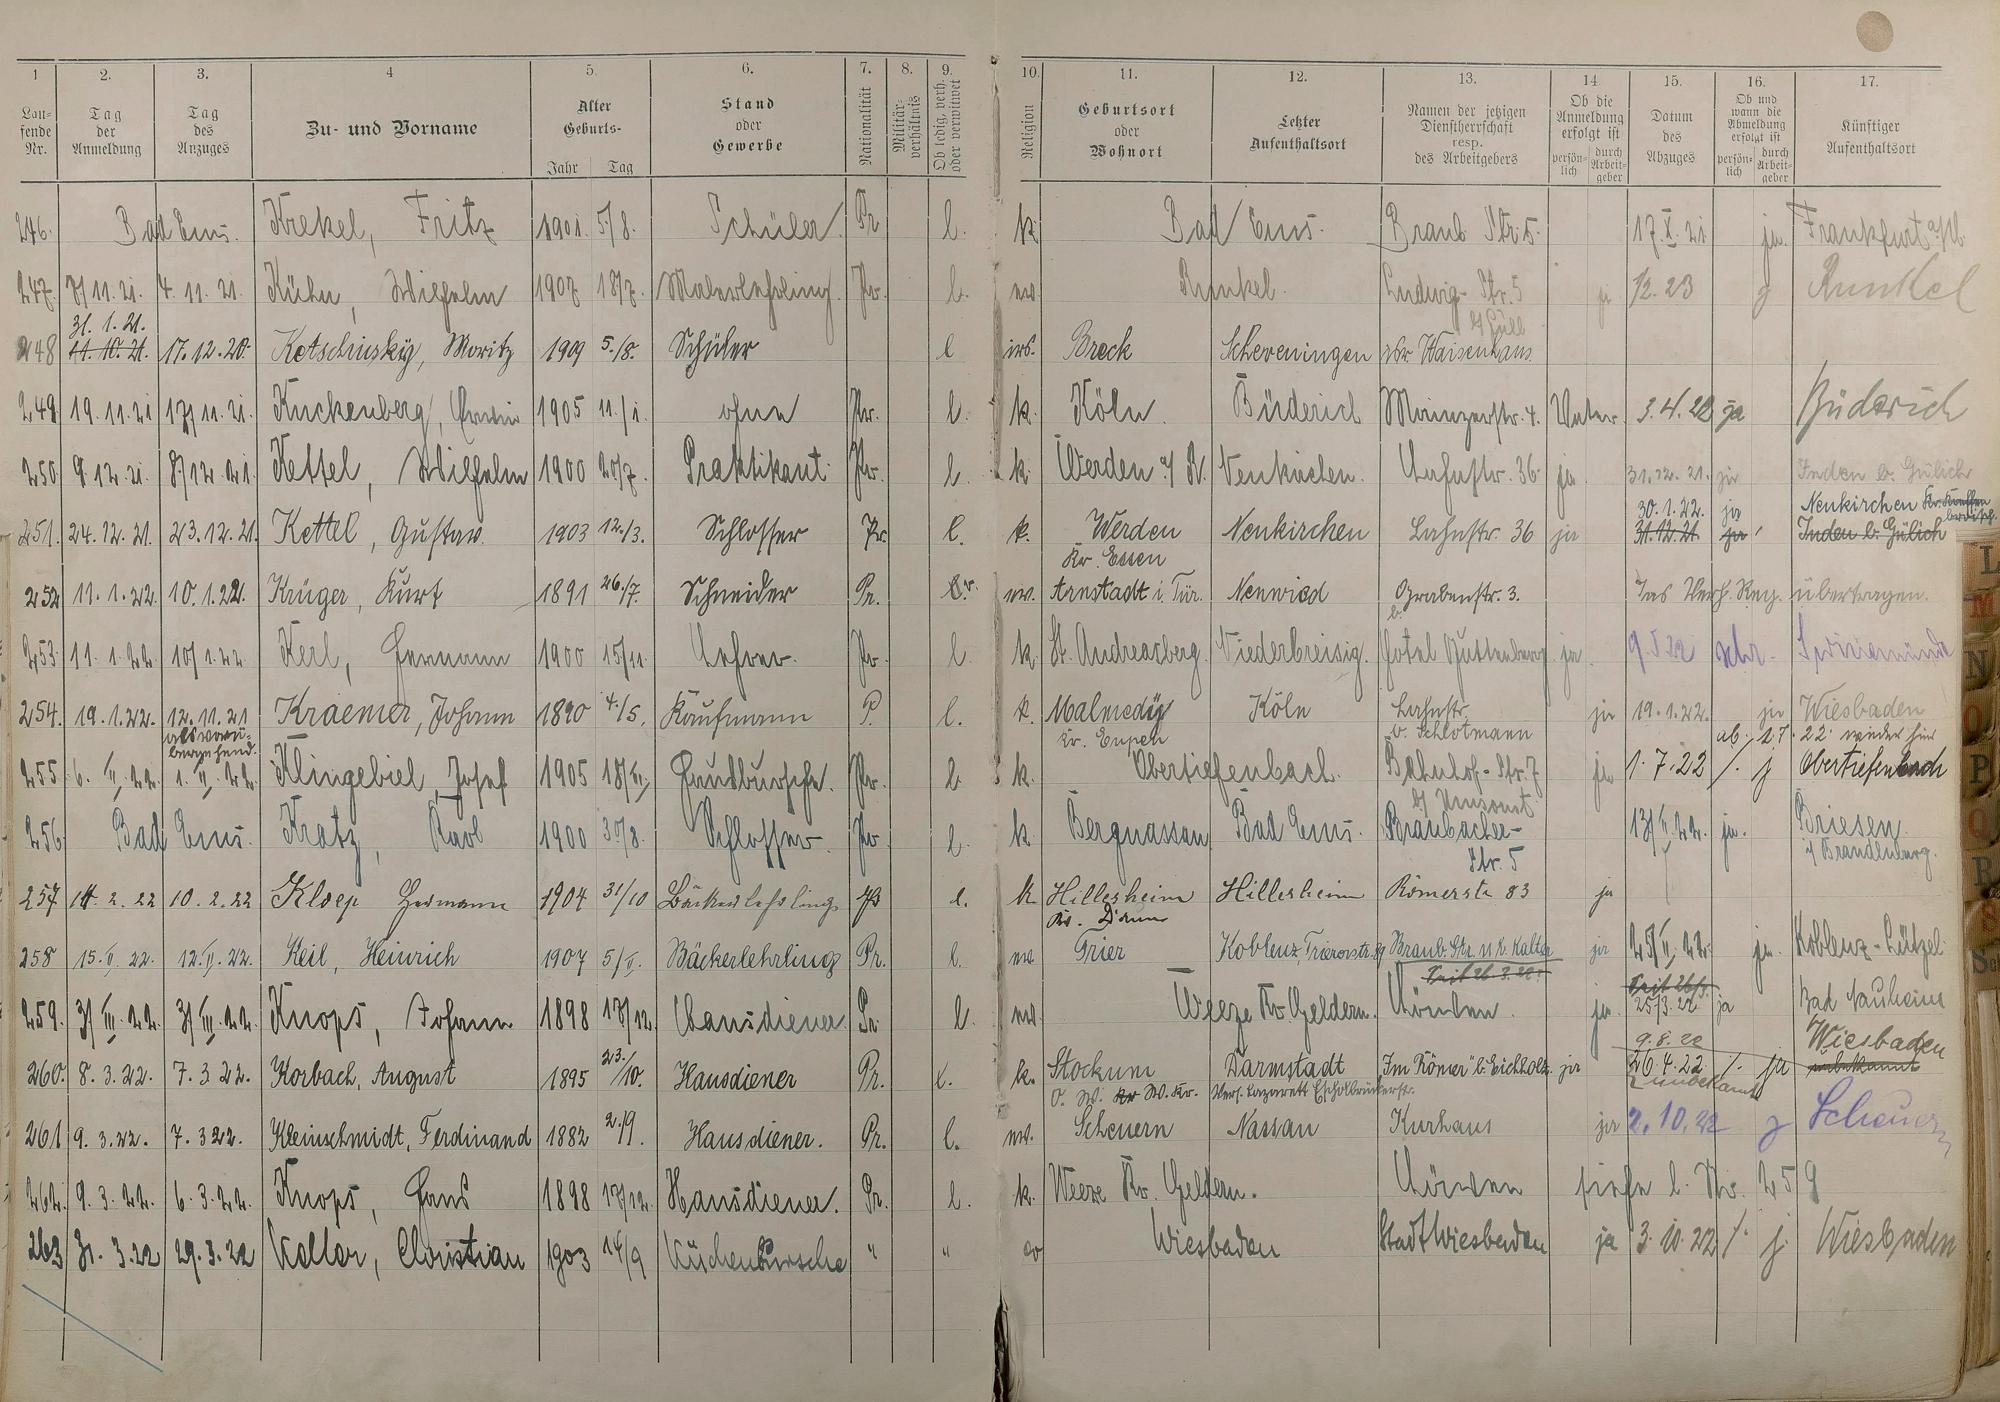 1 2. 3. 4 5. 6. 7. 8. 9. 10. 11. 12. 13. 14 15. 16. 17.
Lau-
fende
Nr.
Tag
der
Anmeldung
Tag
des
Anzuges
Zu- und Vorname
Alter
Geburts-
Jahr Tag
Stand
oder
Gewerbe
Nationalität
Militär-
verhältnis
Ob ledig, verh.
oder verwitwet
Religion
Geburtsort
oder
Wohnort
Letzter
Aufenthaltsort
Namen der jetzigen
Dienstherrschaft
resp.
des Arbeitgebers
Ob die
Anmeldung
erfolgt ist
persön-
lich
durch
Arbeit-
geber
Datum
des
Abzuges
Ob und
wann die
Abmeldung
erfolgt ist
persön-
lich
durch
Arbeit-
geber
Künftiger
Aufenthaltsort
246. Bad Ems. Krekel, Fritz 1901. 5/8. Schüler. Pr l. k. Bad Ems. Braub Str. 5. 17.X.21 ja. Frankfurt a/M.
247. 7/11.21. 4.11.21. Kühn, Wilhelm 1907 18/7. Malerlehrling. Pr. l. ev. Runkel. Ludwig-Str. 5 ja 1/2.23 j Runkel
31.1.21.
248 11.10.21. 17.12.20. Kotschinsky, Moritz 1909 5./8. Schüler l isr. Breck Scheveningen isr. Waisenhaus
249. 19.11.21 17/11.21. Kuckenberg, Erwin 1905 11./1. ohne Pr. l. k. Köln. Büderich Mainzerstr. 4. Vater. 3.4.22 ja Büderich
250. 9.12.21. 8/12.21. Kettel, Wilhelm 1900 20/7. Praktikant. Pr. l. k. Werden a/R. Neukirchen. Lahnstr. 36. ja. 31.12.21. ja Inden b. Gülich
30.1.22. ja Neukirchen
251. 24.12.21. 23.12.21. Kettel, Gustav. 1903 12./3. Schlosser Pr. l. k. Werden Neukirchen Lahnstr. 36 ja 31.12.21 ja Inden b. Gülich
Kr. Essen
252 11.1.22. 10.1.22. Krüger, Kurt 1891 26./7. Schneider Pr. ev. Arnstadt i. Tür. Neuwied Grabenstr. 3. Ins Verh. Reg. übertragen.
253. 11.1.22. 10/1.22. Kerl, Hermann 1900 15/11. Lehrer. Pr. l. k. St. Andreasberg. Niederbreisig. Hotel Guttenberg ja. 9.5.22 schr.
254. 19.1.22. 12.11.21 Kraemer, Johann 1890 4./5. Kaufmann P. l. k. Malmedy Köln Lahnstr. ja 19.1.22. ja Wiesbaden
als vorü-
bergehend.
Kr. Eupen b. Schlotmann ab 1.7.22 wieder hier
255. 6.II.22. 1.II.22. Klingebiel, Josef 1905 18/III. Hausbursche. Pr. l. k. Obertiefenbach. Bahnhof-Str. 7 ja 1.7.22 /. j Obertiefenbach
b/ Umsonst
256. Bad Ems. Kratz, Karl 1900 30/8. Schlosser. Pr l. k. Bergnassau Bad Ems. Braubacher- 13/II.22. ja. Briesen.
Str. 5 i/ Brandenburg.
257 14.2.22 10.2.22 Kloep Hermann 1904 31/10 Bäckerlehrling Pr l. k. Hillesheim Hillesheim Römerstr 83 ja
Kr. Daun
258 15.II.22. 12.II.22. Keil, Heinrich 1907 5/II. Bäckerlehrling Pr. l. ev. Trier Koblenz, Triererstr. Braub. Str. ja 25/II.22. ja. Koblenz-Lützel
259. 3/III.22. 3/III.22. Knops, Johann 1898 17/12. Hausdiener. Pr. l. ev. Weeze Kr. Geldern. Löwen. ja. 25/3.22 ja Bad Nauheim
9.8.22 Wiesbaden
260. 8.3.22. 7.3.22. Korbach, August 1895 23./10. Hausdiener Pr. l. k. Stockum Darmstadt "Im Römer" b. Eichholz. ja 26.4.22 /. ja unbekannt
O. W. W. Kr. Vers. Lazarett Escholbrückerstr. unbekannt
261 9.3.22. 7.3.22. Kleinschmidt, Ferdinand 1882 2./9. Hausdiener. Pr. l. ev. Scheuern Nassau Kurhaus ja 2.10.22 j Scheuern
262. 9.3.22. 6.3.22. Knops, Hans 1898 17/12. Hausdiener. Pr. l. k. Weeze Kr. Geldern. Löwen siehe l. Nr. 259
263 31.3.22 29.3.22 Keller, Christian 1903 14/9 Küchenbursche " " ev Wiesbaden Stadt Wiesbaden ja 3.10.22 /. j. Wiesbaden
L
M
N
O
P
Q
R
S
Sch